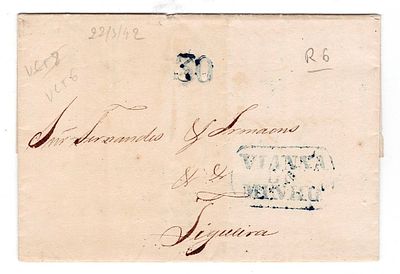 22/3/42
30
R6
VCT8
VCT6
Snr Fernandes & Irmaons
VIANNA
DO
MINHO
& &
Figueira